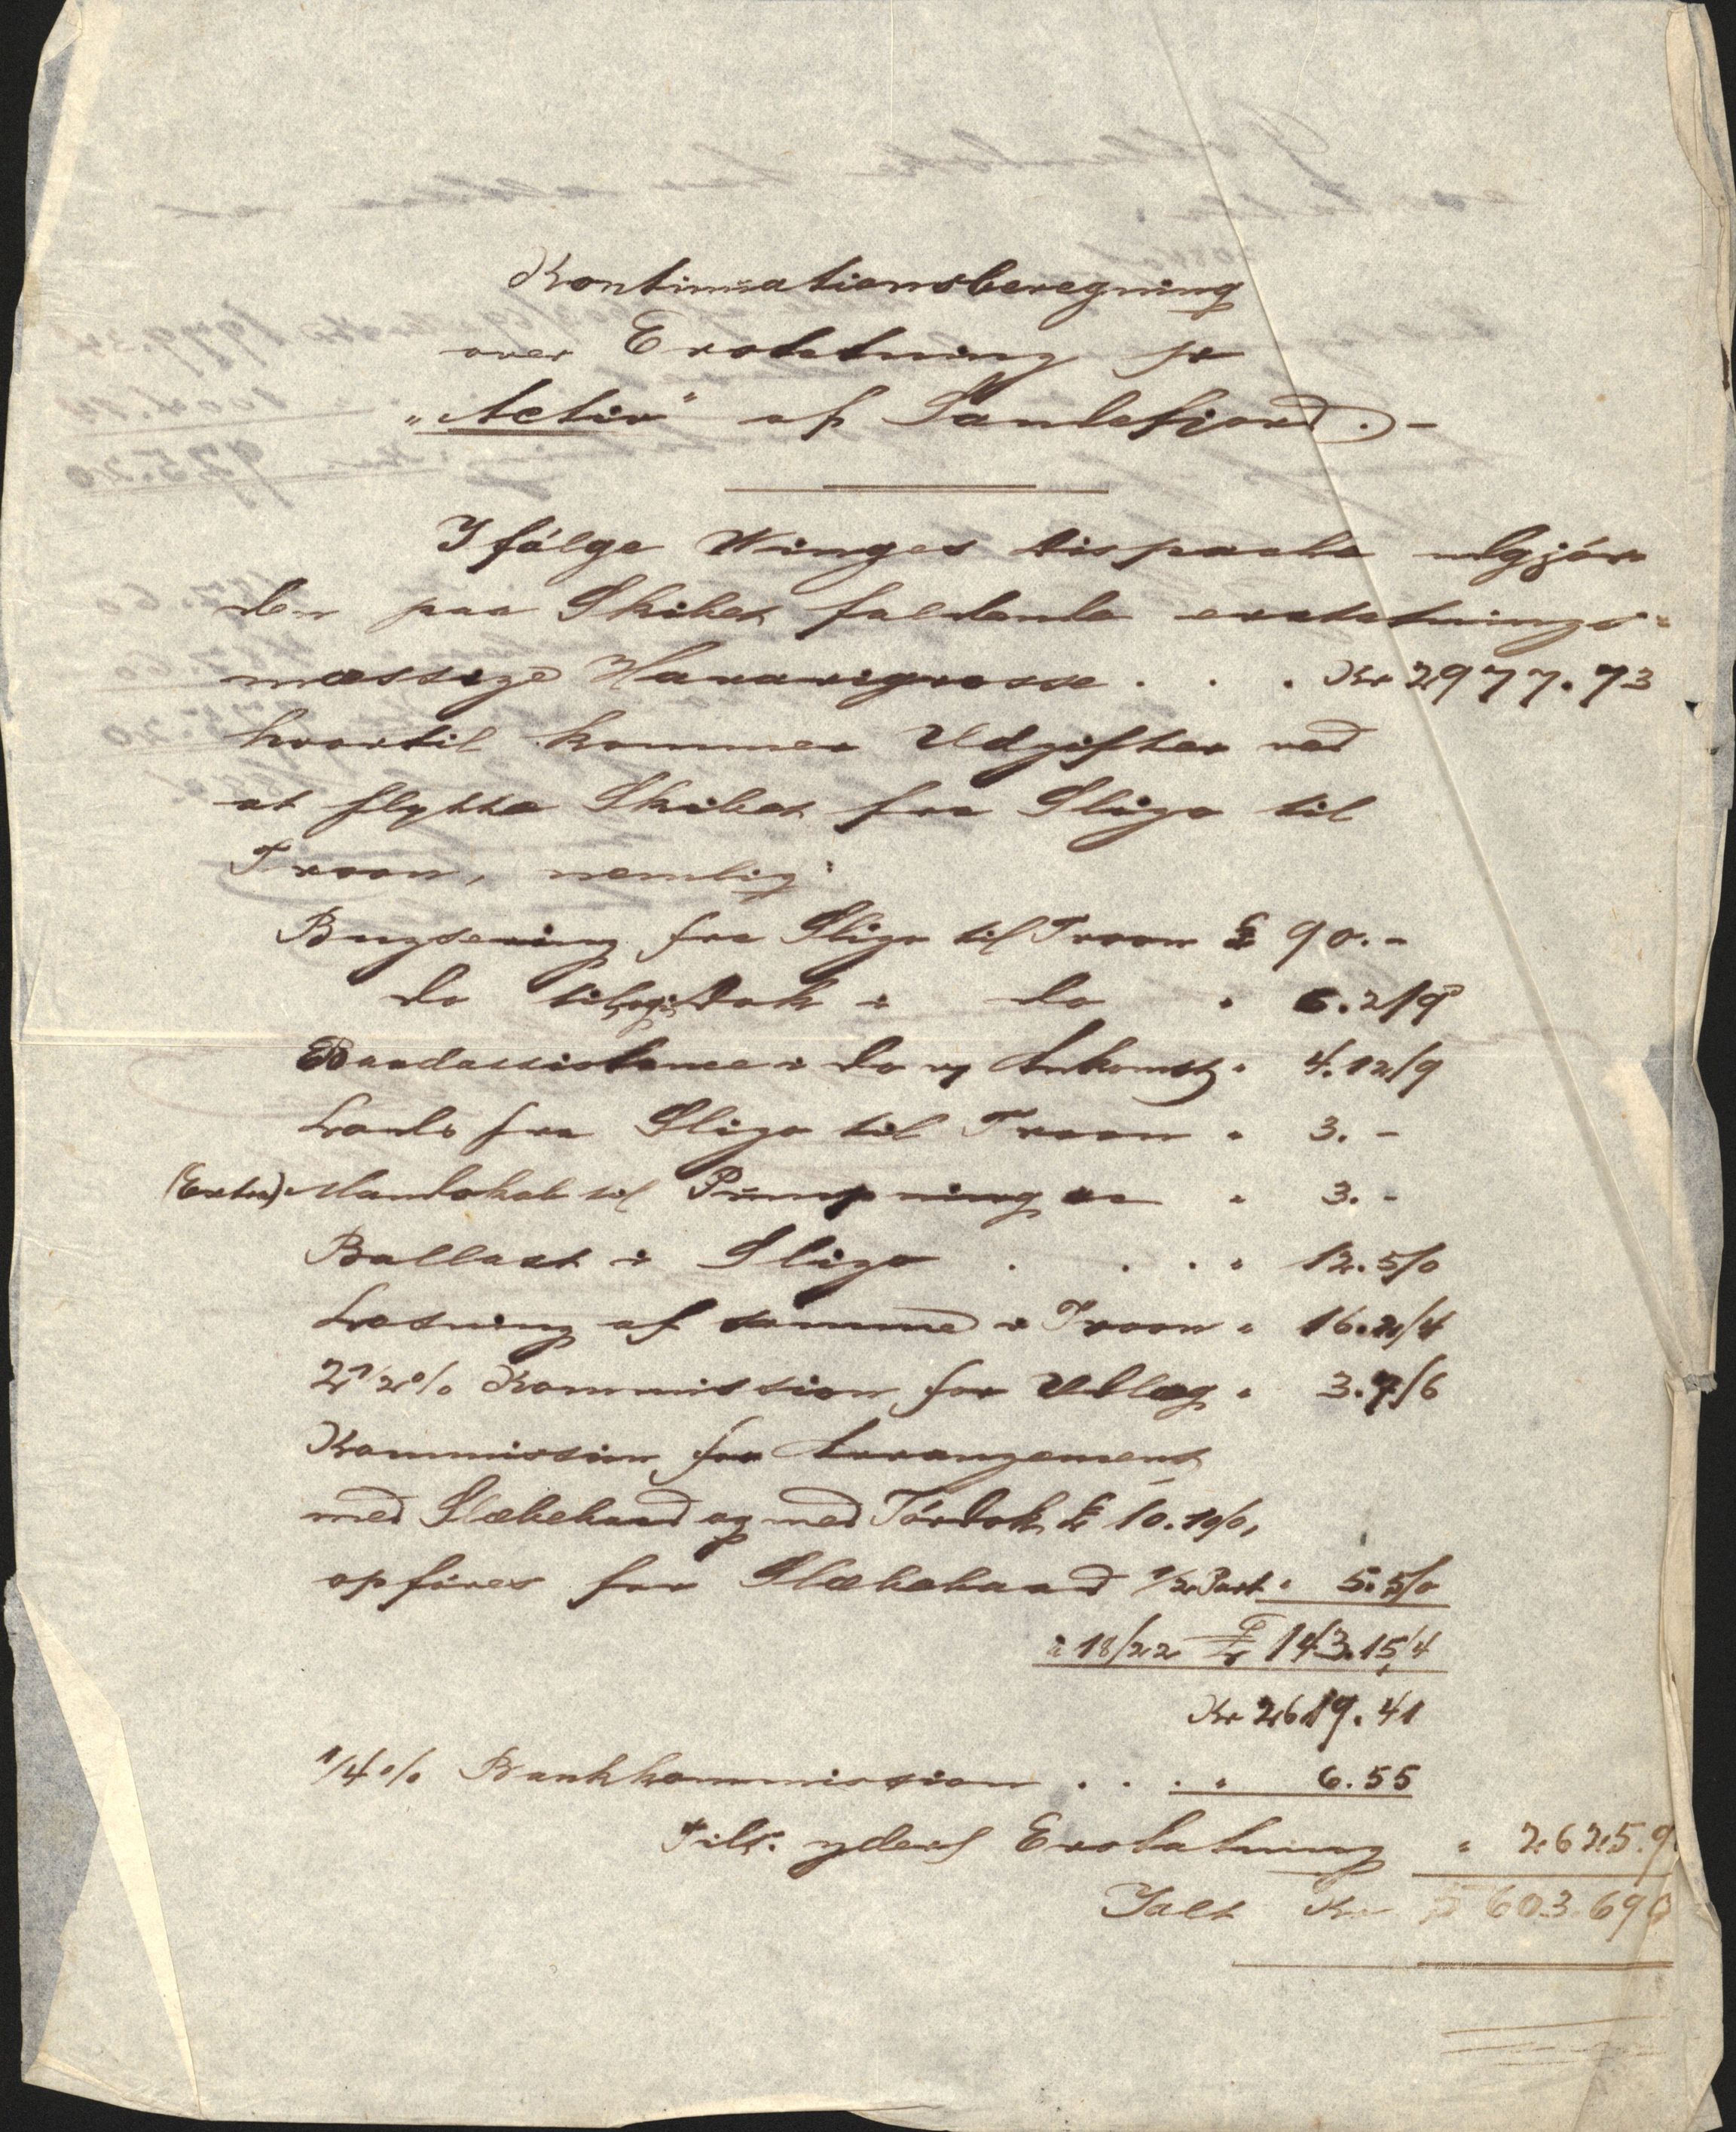 Kontinuationsberegning
over Erstatning pr
"Activ" af Sandefjord. -
Ifølge Winges Dispache udgjør
den paa Skibet faldende erstatnings-
mæssige Havarigrosse . . . Kr 2977.73
hvortil kommer Udgifter ved
at flytte Skibet fra Sligo til
Troon, nemlig:
Bugsering fra Sligo til Troon £ 90.-
do i do " 6.2/9
Baadassistance i do og Ankomst " 4.12/9
Lods fra Sligo til Troon " 3.-
(Extra) Mandskab til Pumpning " 3.-
Ballast i Sligo . . . " 12.5/0
Losning af samme i Troon " 16.2/4
2 1/2 % Kommission for Udlæg " 3.7/6
Kommission for Arrangement
med Slæbebaad og med Tørdok £ 10.10/0,
opføres for Slæbebaad 1/2 Part " 5.5/0
à 18/22 £ 143.15/4
Kr 2619.41
1/4 % Bankkommission . . . " 6.55
Tils. yderl Erstatning " 2625.9
Ialt Kr 5603 69